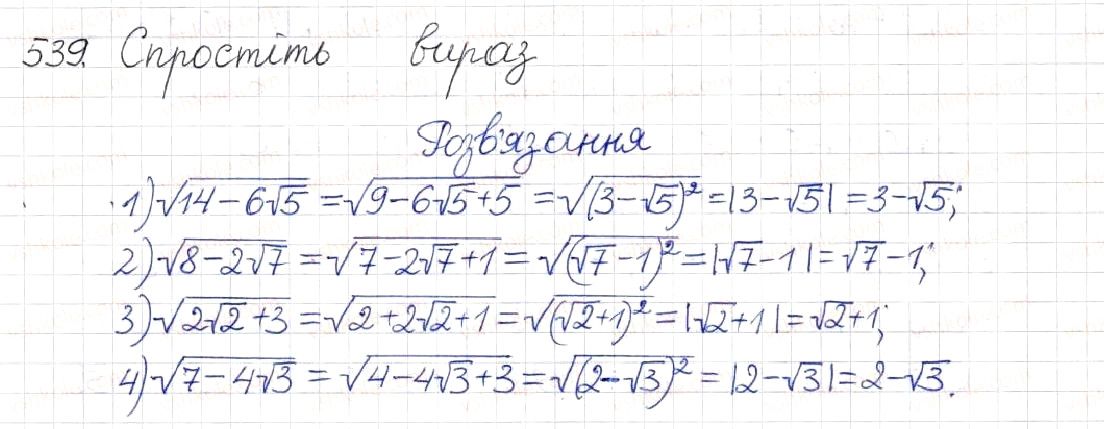 539. Спростіть вираз
Розв'язання
1) √(14-6√5) = √(9-6√5+5) = √((3-√5)²) = |3-√5| = 3-√5;
2) √(8-2√7) = √(7-2√7+1) = √((√7-1)²) = |√7-1| = √7-1;
3) √(2√2+3) = √(2+2√2+1) = √((√2+1)²) = |√2+1| = √2+1;
4) √(7-4√3) = √(4-4√3+3) = √((2-√3)²) = |2-√3| = 2-√3.